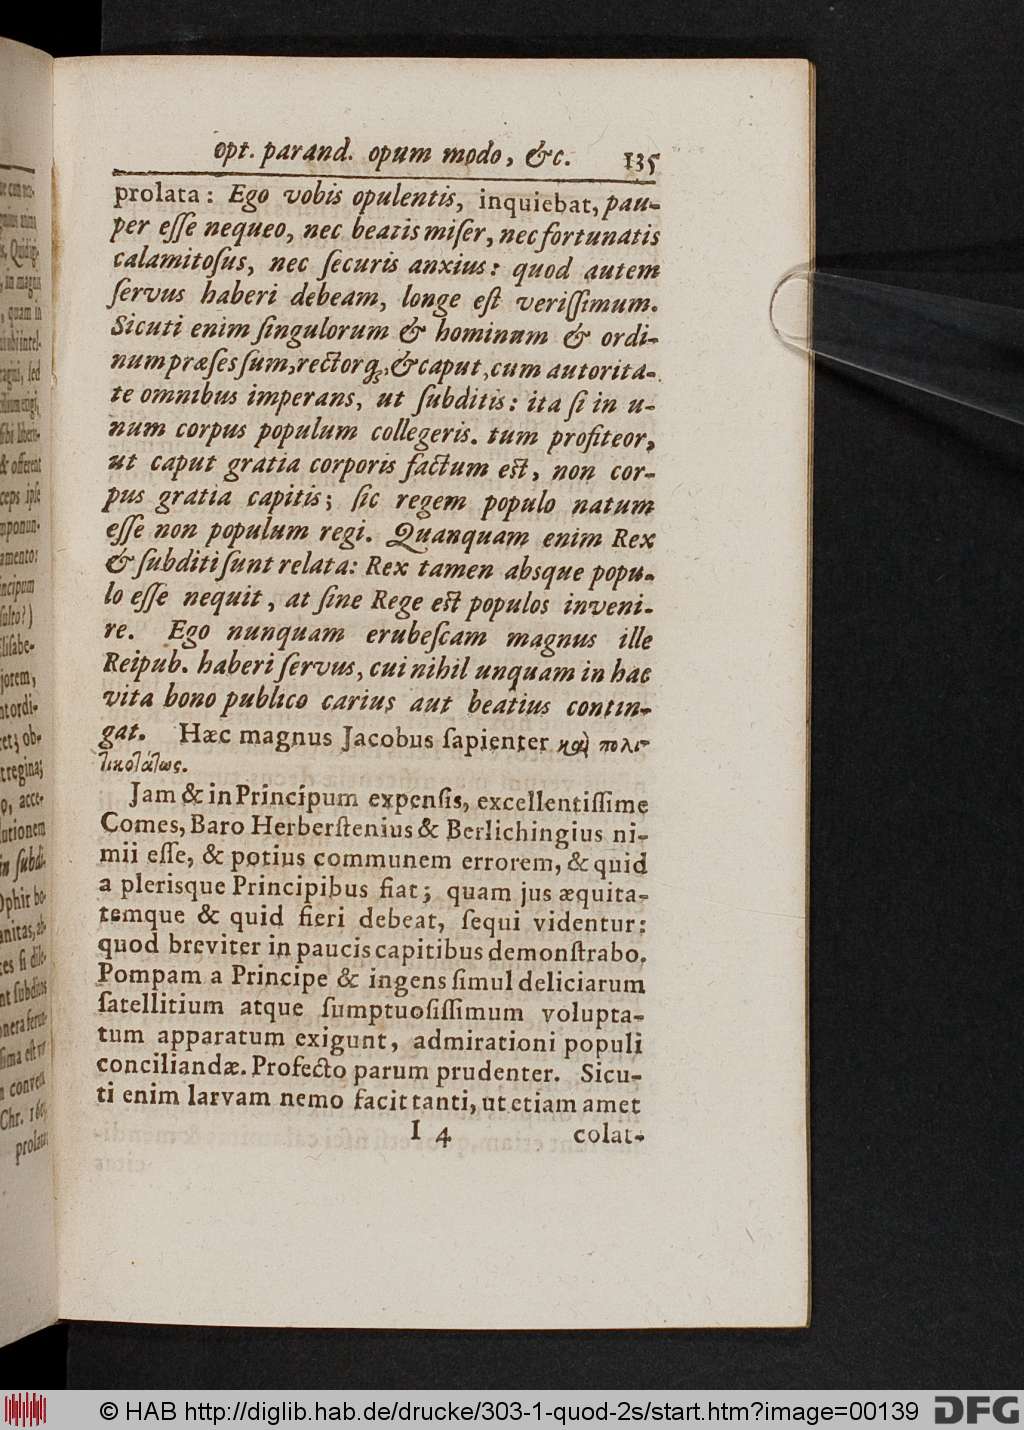 opt. parand. opum modo, &c. 135
prolata: Ego vobis opulentis, inquiebat, pau-
per eſſe nequeo, nec beatis miſer, nec fortunatis
calamitoſus, nec ſecuris anxius: quod autem
ſervus haberi debeam, longe eſt veriſſimum.
Sicuti enim ſingulorum & hominum & ordi-
num præſes ſum, rectorq;, & caput, cum autorita-
te omnibus imperans, ut ſubditis: ita ſi in u-
num corpus populum collegeris. tum profiteor,
ut caput gratia corporis factum eſt, non cor-
pus gratia capitis; ſic regem populo natum
eſſe non populum regi. Quanquam enim Rex
& ſubditi ſunt relata: Rex tamen absque popu-
lo eſſe nequit, at ſine Rege eſt populos inveni-
re. Ego nunquam erubeſcam magnus ille
Reipub. haberi ſervus, cui nihil unquam in hac
vita bono publico carius aut beatius contin-
gat. Hæc magnus Jacobus ſapienter καὶ πολι-
τικοτάτως.
Jam & in Principum expenſis, excellentiſſime
Comes, Baro Herberſtenius & Berlichingius ni-
mii eſſe, & potius communem errorem, & quid
a plerisque Principibus fiat; quam jus æquita-
temque & quid fieri debeat, ſequi videntur:
quod breviter in paucis capitibus demonſtrabo.
Pompam a Principe & ingens ſimul deliciarum
ſatellitium atque ſumptuoſiſſimum volupta-
tum apparatum exigunt, admirationi populi
conciliandæ. Profecto parum prudenter. Sicu-
ti enim larvam nemo facit tanti, ut etiam amet
I 4 colat-
© HAB http://diglib.hab.de/drucke/303-1-quod-2s/start.htm?image=00139
DFG